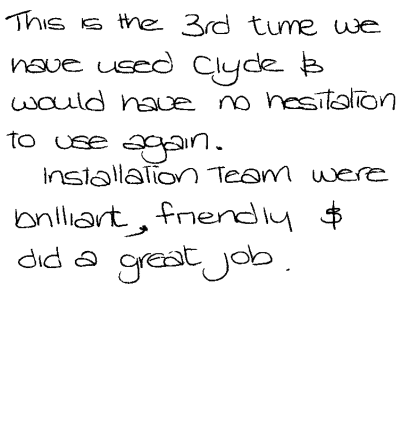 This is the 3rd time we
have used Clyde &
would have no hesitation
to use again.
Installation Team were
brilliant, friendly &
did a great job.